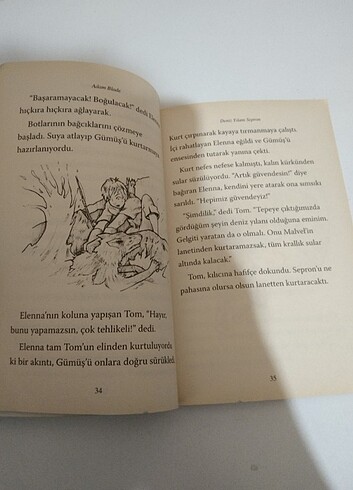 Adam Blade
"Başaramayacak! Boğulacak!" dedi
hıçkıra hıçkıra ağlayarak.
Botlarının bağcıklarını çözmeye
başladı. Suya atlayıp Gümüş'ü kurtarmaya
hazırlanıyordu.
Elenna'nın koluna yapışan Tom, "Hayır,
bunu yapamazsın, çok tehlikeli!" dedi.
Elenna tam Tom'un elinden kurtuluyordu
ki bir akıntı, Gümüş'ü onlara doğru sürükledi.
34
Deniz Yılanı Sepron
Kurt çırpınarak kayaya tırmanmaya çalıştı.
İçi rahatlayan Elenna eğildi ve Gümüş'ü
ensesinden tutarak yanına çekti.
Kurt nefes nefese kalmıştı, kalın kürkünden
sular süzülüyordu. "Artık güvendesin!" diye
bağıran Elenna, kendini yere atarak ona sımsıkı
sarıldı. "Hepimiz güvendeyiz!"
"Şimdilik," dedi Tom. "Tepeye çıktığımızda
gördüğüm şeyin deniz yılanı olduğuna eminim.
Gelgiti yaratan da o olmalı. Onu Malvel'in
lanetinden kurtaramazsak, tüm krallık sular
altında kalacak."
Tom, kılıcına hafifçe dokundu. Sepron'u ne
pahasına olursa olsun lanetten kurtaracaktı.
35